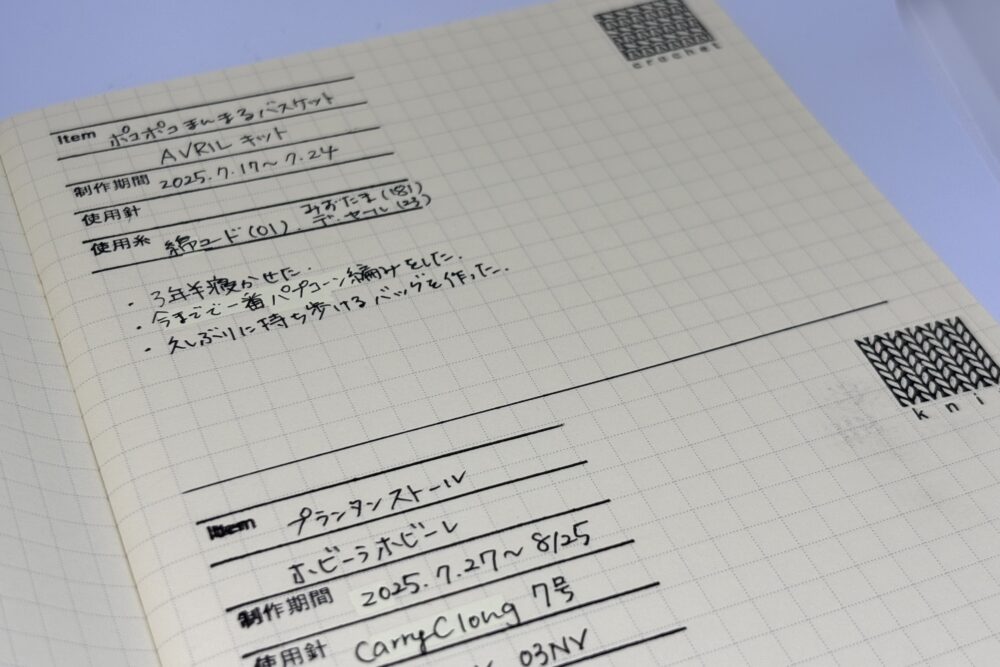 crochet
Item ポコポコまんまるバスケット
AVRIL キット
制作期間 2025.7.17〜7.24
使用針
使用糸 綿コード(01).みずたま(181)
デ.セール(23)
・3年半寝かせた.
・今までで一番パプコーン編みをした.
・久しぶりに持ち歩けるバッグを作った.
kni
Item プランタンストール
ホビーラホビーレ
制作期間 2025.7.27〜8/25
使用針 CarryC long 7号
03NV